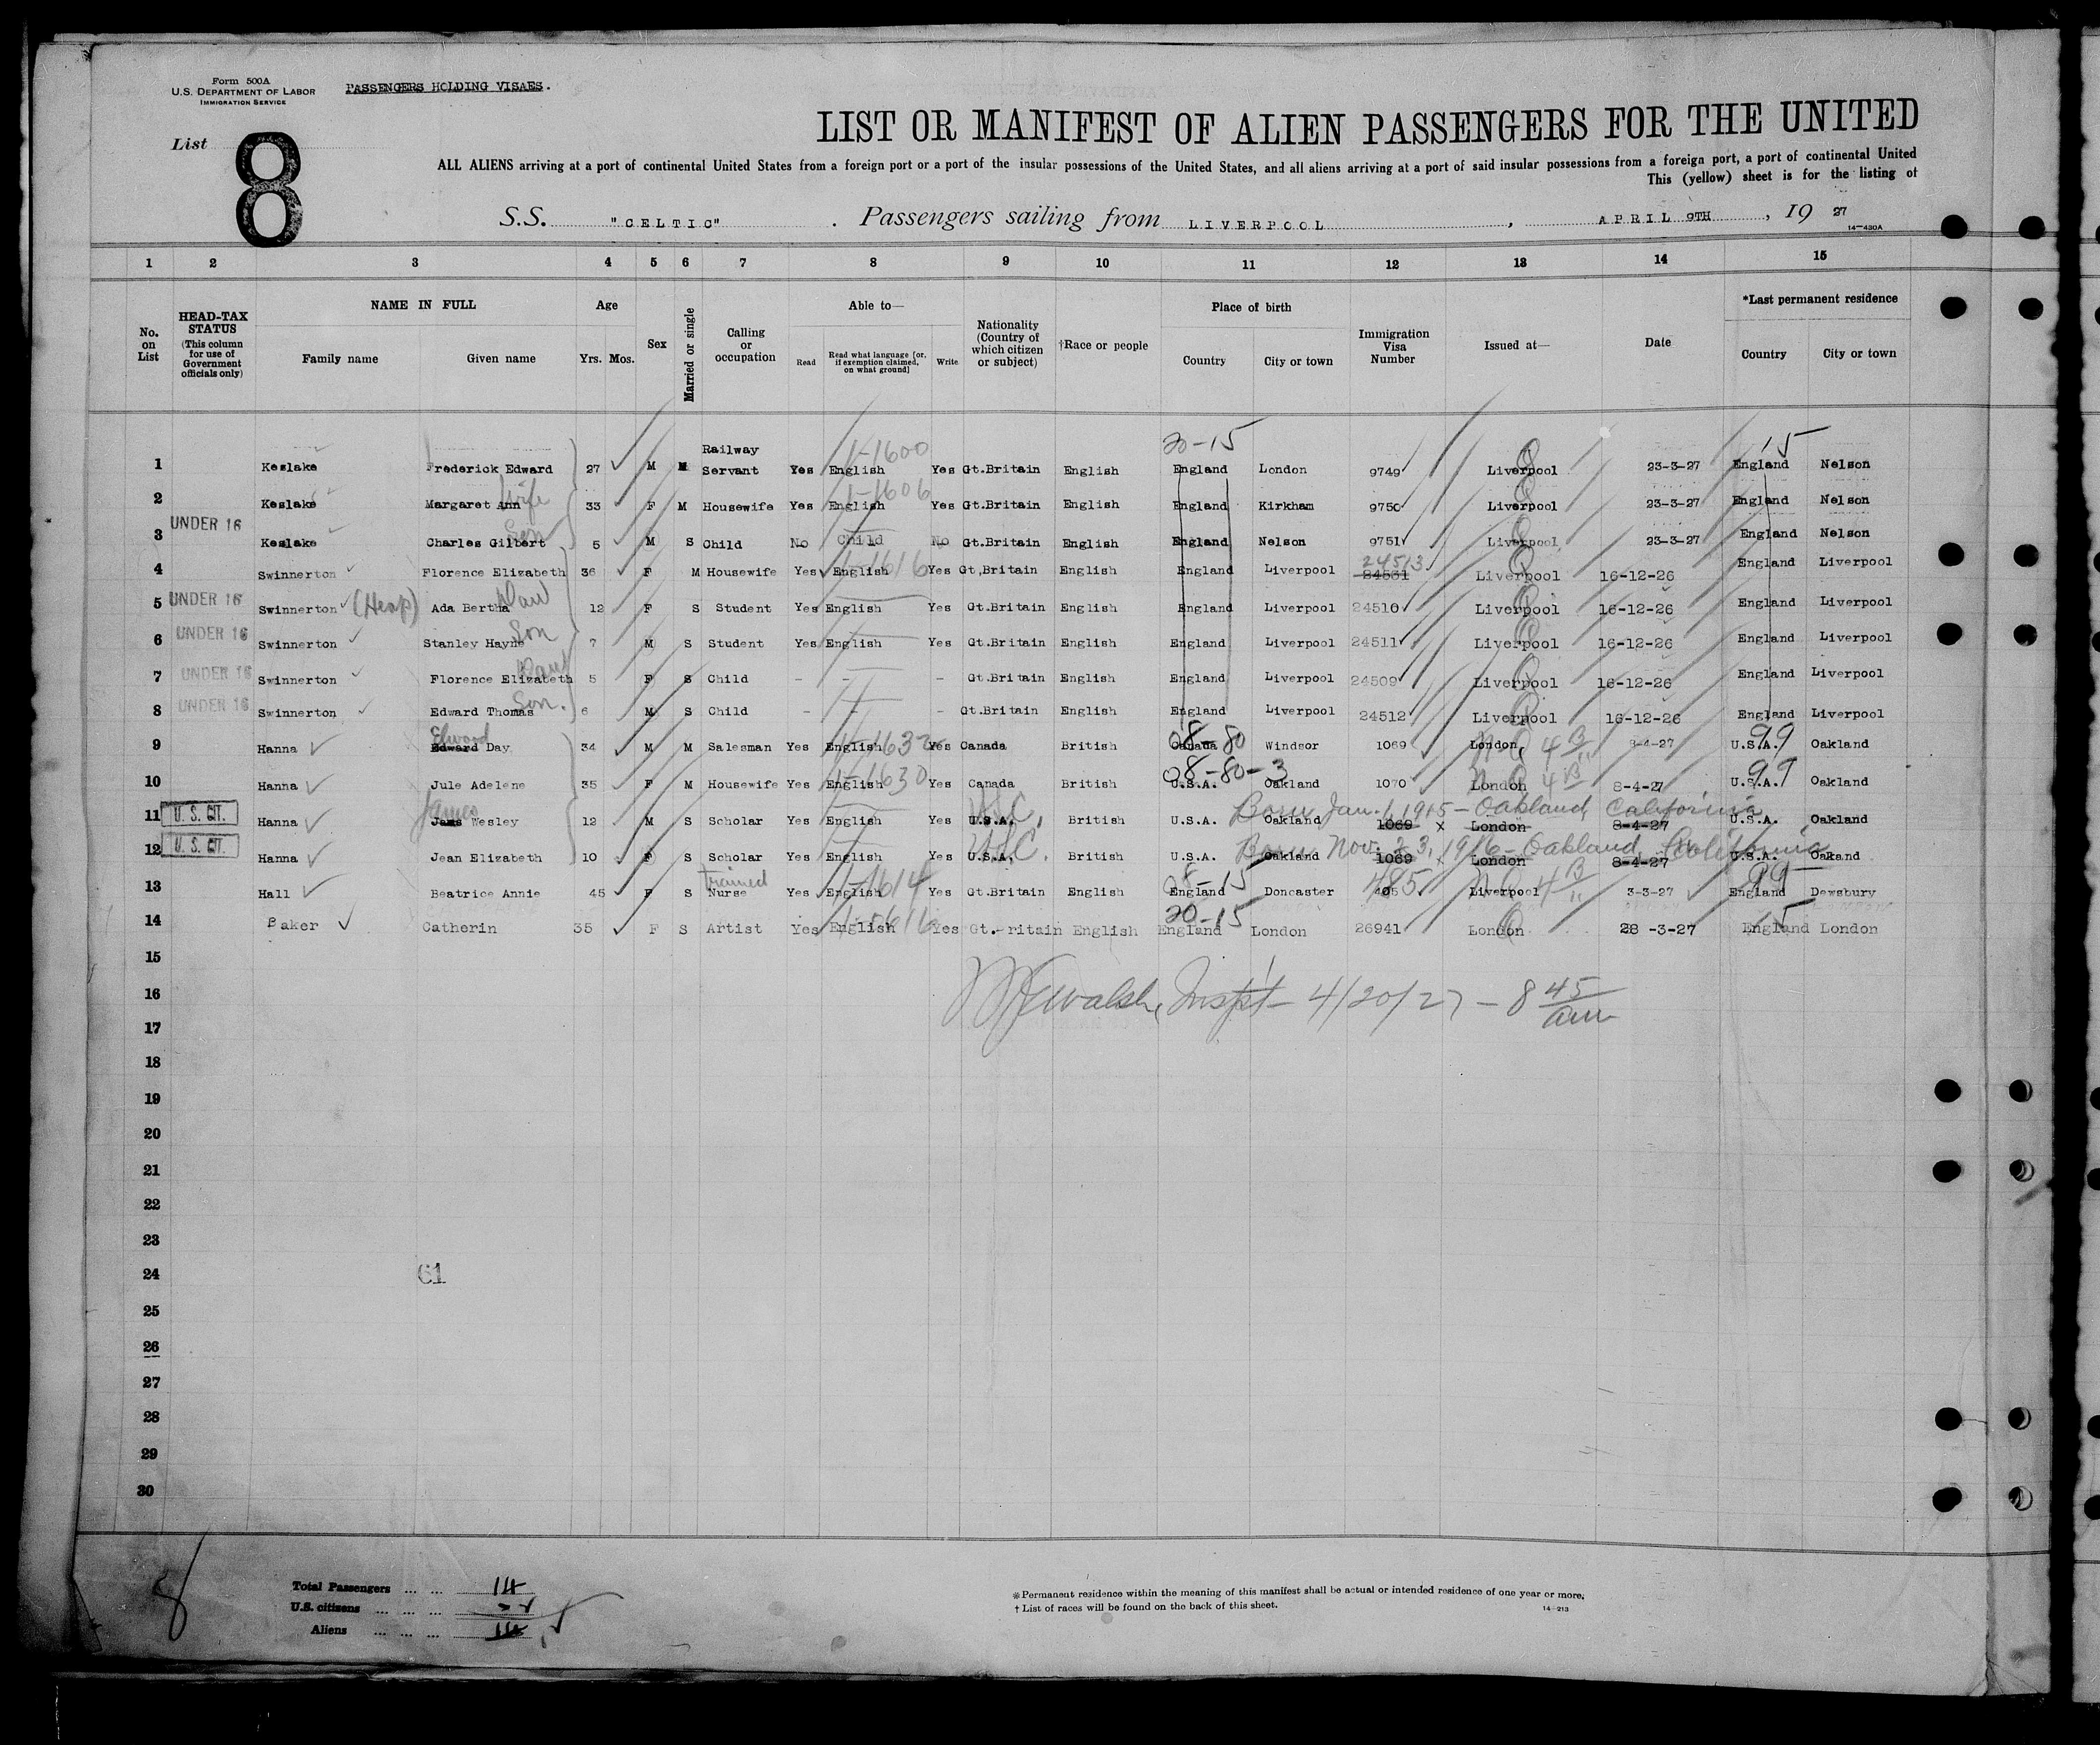 Form 500A
U.S. DEPARTMENT OF LABOR
IMMIGRATION SERVICE
PASSENGERS HOLDING VISAES.
List 8
LIST OR MANIFEST OF ALIEN PASSENGERS FOR THE UNITED
ALL ALIENS arriving at a port of continental United States from a foreign port or a port of the insular possessions of the United States, and all aliens arriving at a port of said insular possessions from a foreign port, a port of continental United
This (yellow) sheet is for the listing of
S.S. "CELTIC" . Passengers sailing from LIVERPOOL , APRIL 9TH , 19 27
14-430A
1 2 3 4 5 6 7 8 9 10 11 12 13 14 15
No. on List
HEAD-TAX STATUS (This column for use of Government officials only)
NAME IN FULL Family name Given name
Age Yrs. Mos.
Sex
Married or single
Calling or occupation
Able to— Read Read what language [or, if exemption claimed, on what ground] Write
Nationality (Country of which citizen or subject)
†Race or people
Place of birth Country City or town
Immigration Visa Number
Issued at—
Date
*Last permanent residence Country City or town
20-15 15
1 Keslake Frederick Edward 27 M M Railway Servant Yes English 1-1600 Yes Gt.Britain English England London 9749 Liverpool 23-3-27 England Nelson
2 Keslake Margaret Ann wife 33 F M Housewife Yes English 1-1606 Yes Gt.Britain English England Kirkham 9750 Liverpool 23-3-27 England Nelson
3 UNDER 16 Keslake Charles Gilbert Son 5 M S Child No Child No Gt.Britain English England Nelson 9751 Liverpool 23-3-27 England Nelson
4 Swinnerton Florence Elizabeth 36 F M Housewife Yes English 1-1616 Yes Gt,Britain English England Liverpool 24513 Liverpool 16-12-26 England Liverpool
5 UNDER 16 Swinnerton (Heap) Ada Bertha Dau 12 F S Student Yes English Yes Gt.Britain English England Liverpool 24510 Liverpool 16-12-26 England Liverpool
6 UNDER 16 Swinnerton Stanley Hayne Son 7 M S Student Yes English Yes Gt.Britain English England Liverpool 24511 Liverpool 16-12-26 England Liverpool
7 UNDER 16 Swinnerton Florence Elizabeth Dau 5 F S Child - - - Gt.Britain English England Liverpool 24509 Liverpool 16-12-26 England Liverpool
8 UNDER 16 Swinnerton Edward Thomas Son. 6 M S Child - - - Gt.Britain English England Liverpool 24512 Liverpool 16-12-26 England Liverpool
9 Hanna Elwood Edward Day 34 M M Salesman Yes English 1-1632 Yes Canada British 08-80 Canada Windsor 1069 London, 8-4-27 99 U.S.A. Oakland
10 Hanna Jule Adelene 35 F M Housewife Yes English 1-1630 Yes Canada British 08-80-3 U.S.A. Oakland 1070 London 8-4-27 99 U.S.A. Oakland
11 U. S. CIT. Hanna James Wesley 12 M S Scholar Yes English Yes USC, U.S.A. British U.S.A. Oakland Born Jan. 1, 1915 - Oakland, California 1069 x London 8-4-27 U.S.A. Oakland
12 U. S. CIT. Hanna Jean Elizabeth 10 F S Scholar Yes English Yes USC. U.S.A. British U.S.A. Oakland Born Nov. 23, 1916 - Oakland, California 1069 London 8-4-27 U.S.A. Oakand
13 Hall Beatrice Annie 45 F S trained Nurse Yes English 1-1614 Yes Gt.Britain English 08-15 England Doncaster 485 Liverpool 3-3-27 99 England Dewsbury
14 Baker Catherin 35 F S Artist Yes English Yes Gt.-ritain English 20-15 England London 26941 London 28 -3-27 15 England London
15
16 Walsh, Insp't - 4/20/27 - 8 45 am
17
18
19
20
21
22
23
24 61
25
26
27
28
29
30
8
Total Passengers ... ... 14
U.S. citizens ... ... ...
Aliens ... ... ... 14
*Permanent residence within the meaning of this manifest shall be actual or intended residence of one year or more.
† List of races will be found on the back of this sheet.
14-213